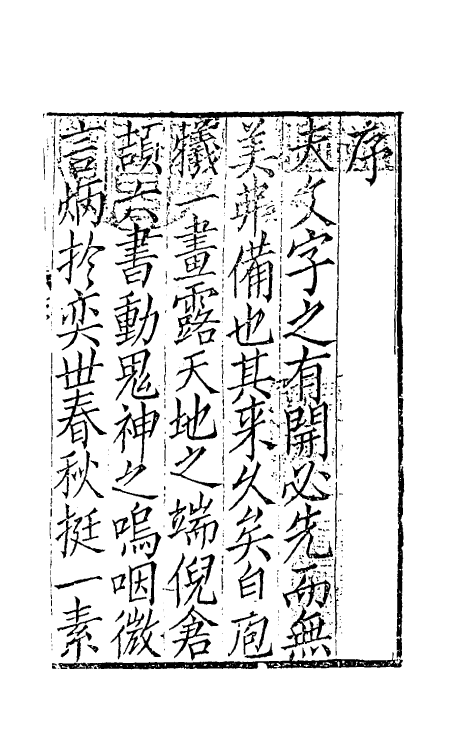 序
夫文字之有開必先而無
美弗備也其来久矣自庖
犧一畫露天地之端倪倉
頡六書動鬼神之嗚咽微
言炳扵奕世春秋挺一素